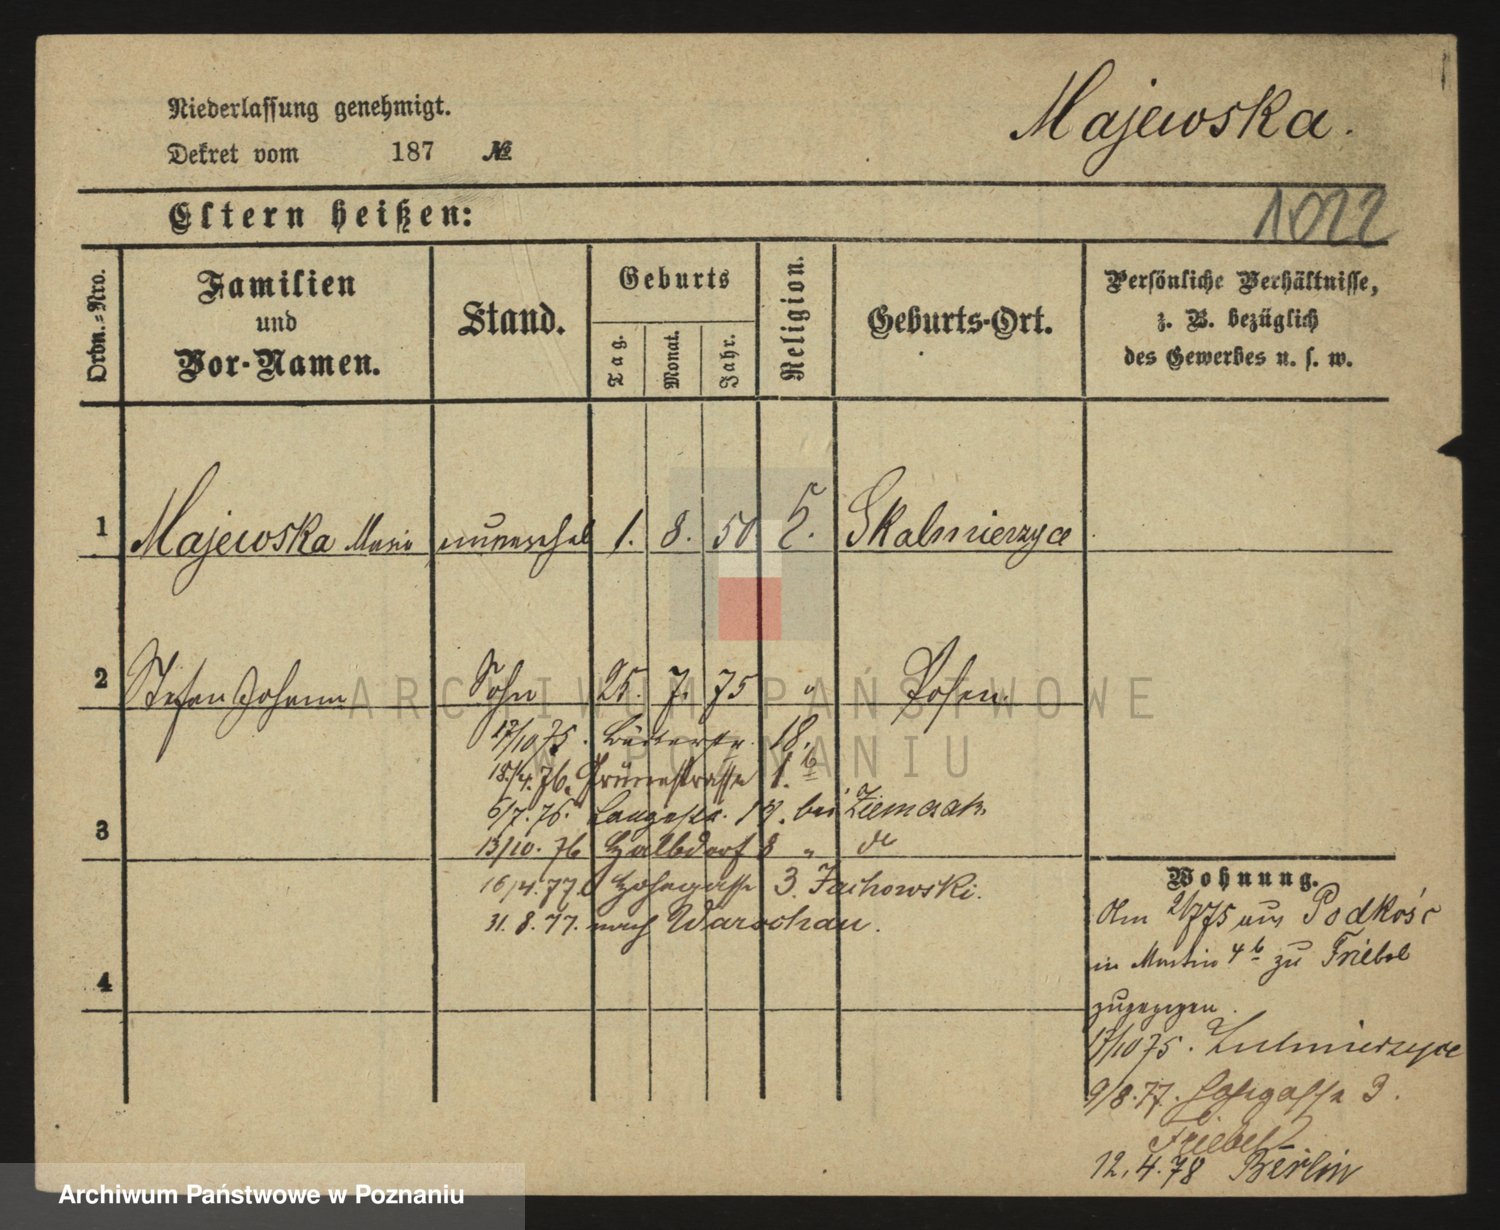 Niederlassung genehmigt.
Dekret vom 187 №
Majewska.
Eltern heißen:
1022
Ordn.-Nro.
Familien
und
Vor-Namen.
Stand.
Geburts
Tag.
Monat.
Jahr.
Religion.
Geburts-Ort.
Persönliche Verhältnisse,
z. B. bezüglich
des Gewerbes u. s. w.
1 Majewska Marie unverehel 1. 8. 50 Skalmierzyce
2 Stefan Johann Sohn 25. 7. 75 " Posen
17/10 75. 18.
18/4. 76. Grünestrasse 1.
6/7. 76. Langestr. bei Ziemczak
3
13/10. 76 Halbdorf 8 " do
16/4. 77. 3.
31. 8. 77. nach Warschau.
4
Wohnung.
Am 2/7 75 aus
in Martin 4 b zu Friebel
zugezogen.
17/10 75.
9/8. 77. 3.
Friebel
12. 4. 78 Berlin
ARCHIWUM PAŃSTWOWE
W POZNANIU
Archiwum Państwowe w Poznaniu